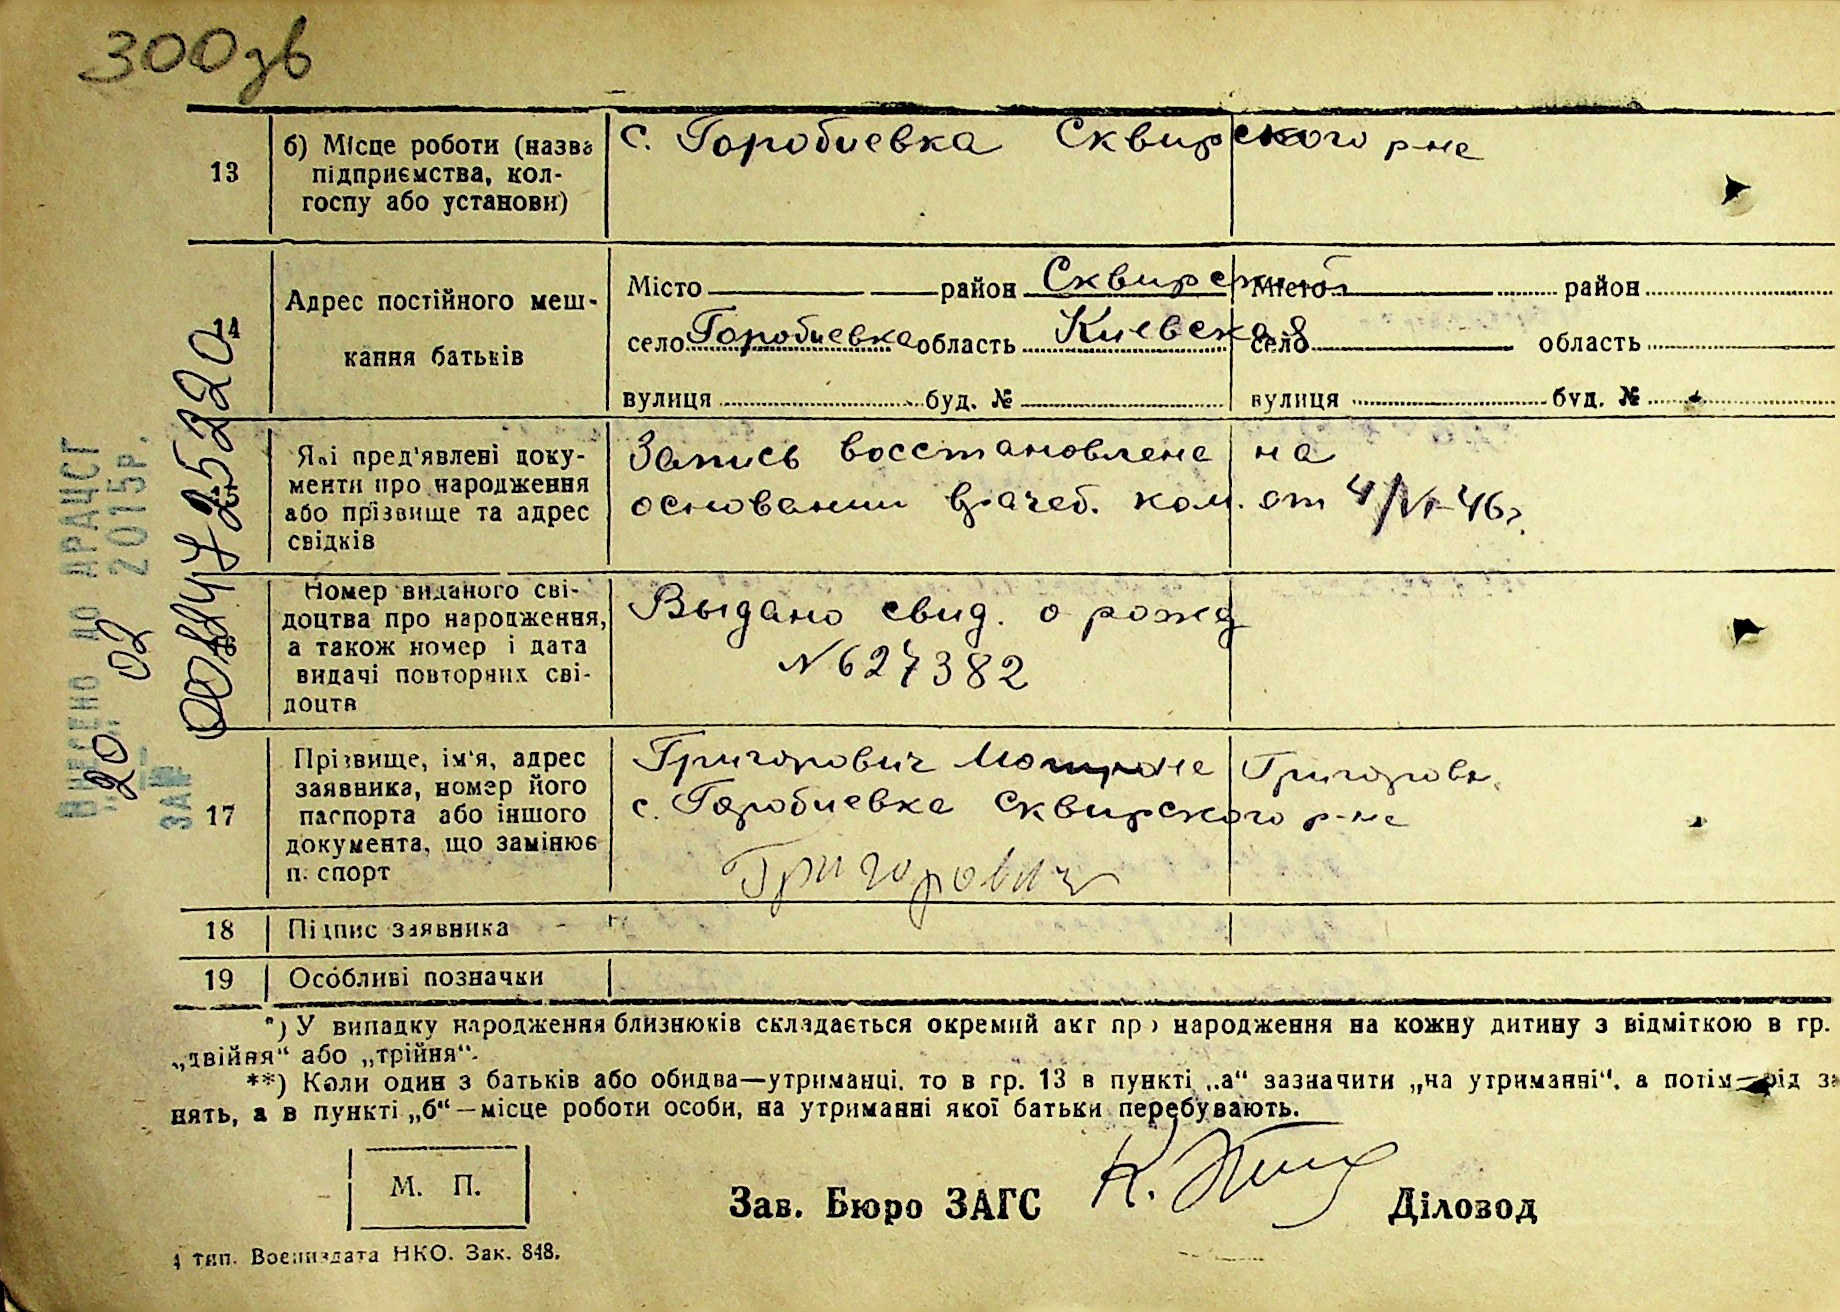 300зв
13
б) Місце роботи (назва
підприємства, кол-
госпу або установи)
с. Горобиевка Сквирского р-на
14
Адрес постійного меш-
кання батьків
Місто район Сквирский Місто район
село Горобиевка область Киевская село область
вулиця буд. № вулиця буд. №
Які пред'явлені доку-
менти про народження
або прізвище та адрес
свідків
Запись восстановлена на
основании врачеб. ком. от 4/VI-46г.
Номер виданого сві-
доцтва про народження,
а також номер і дата
видачі повторних сві-
доцтв
Выдано свид. о рожд
№627382
17
Прізвище, ім'я, адрес
заявника, номер його
паспорта або іншого
документа, що замінює
паспорт
Григорович Мотрона Григоровн.
с. Горобиевка Сквирского р-на
Григорович
18
Підпис заявника
19
Особливі позначки
*) У випадку народження близнюків складається окремий акт про народження на кожну дитину з відміткою в гр.
„двійня“ або „трійня“.
**) Коли один з батьків або обидва—утриманці, то в гр. 13 в пункті „а“ зазначити „на утриманні“, а потім—рід за
нять, а в пункті „б“—місце роботи особи, на утриманні якої батьки перебувають.
М. П.
Зав. Бюро ЗАГС
Діловод
4 тип. Воениздата НКО. Зак. 848.
ВНЕСЕНО ДО ДРАЦСГ
20 02 2015р.
ЗА №